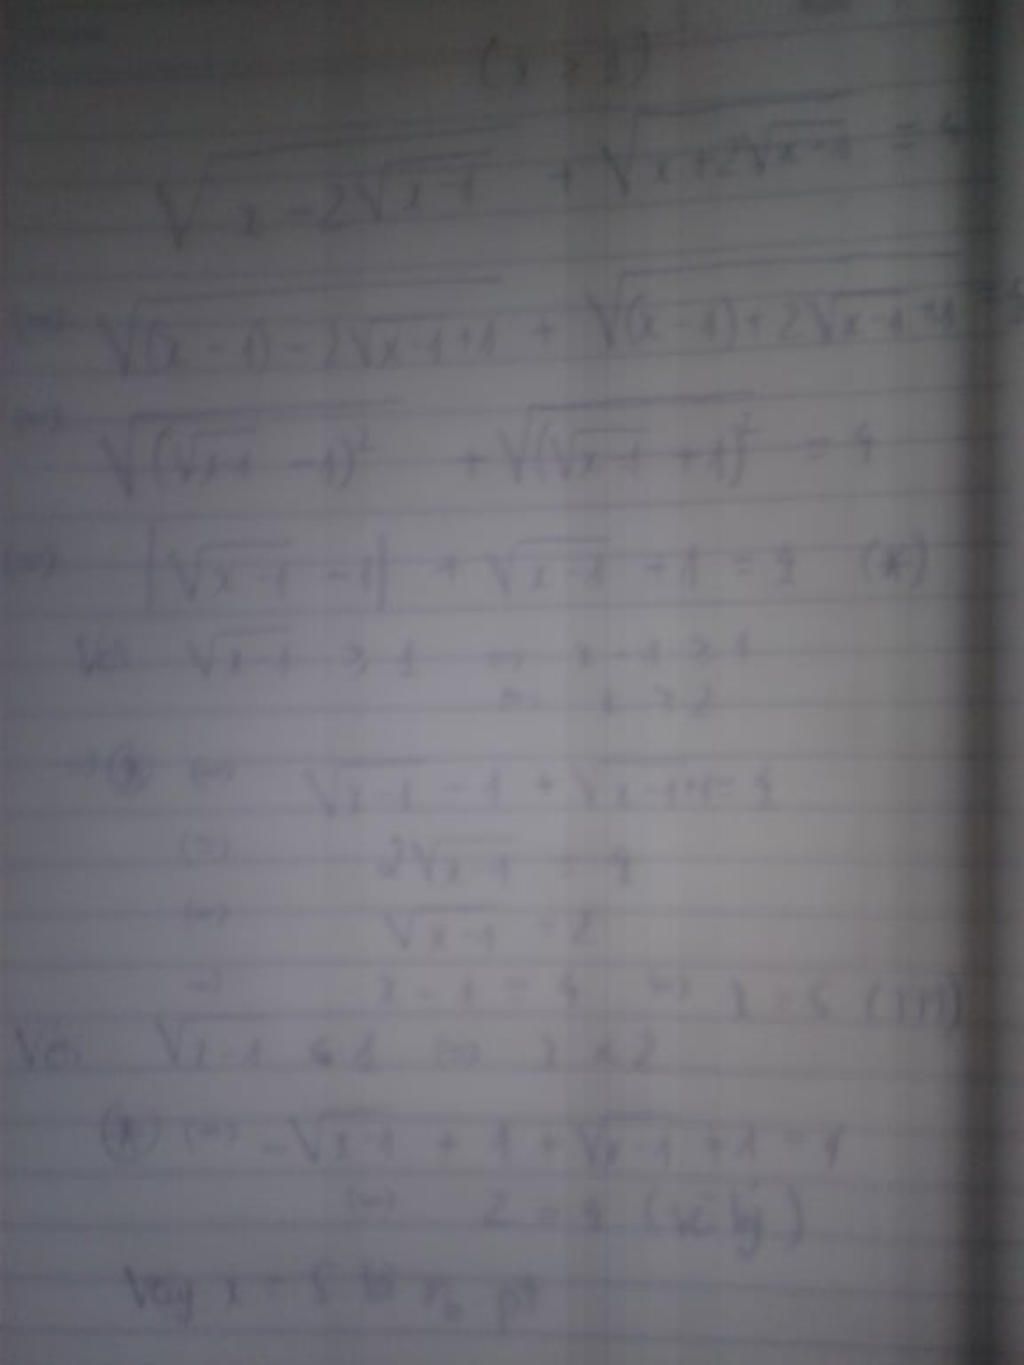 (x ≥ 1)
√(x - 2√(x-1)) + √(x + 2√(x-1)) = 4
(=) √((x - 1) - 2√(x-1) + 1) + √((x - 1) + 2√(x-1) + 1) = 4
(=) √((√(x-1) - 1)²) + √((√(x-1) + 1)²) = 4
(=) |√(x-1) - 1| + √(x-1) + 1 = 4 (*)
Với √(x-1) ≥ 1 (=) x - 1 ≥ 1
(=) x ≥ 2
→ (*) (=) √(x-1) - 1 + √(x-1) + 1 = 4
(=) 2√(x-1) = 4
(=) √(x-1) = 2
x - 1 = 4 (=) x = 5 (TM)
Với √(x-1) < 1 (=) x < 2
(*) (=) -√(x-1) + 1 + √(x-1) + 1 = 4
(=) 2 = 4 (vô lý)
Vậy x = 5 là n₀ pt